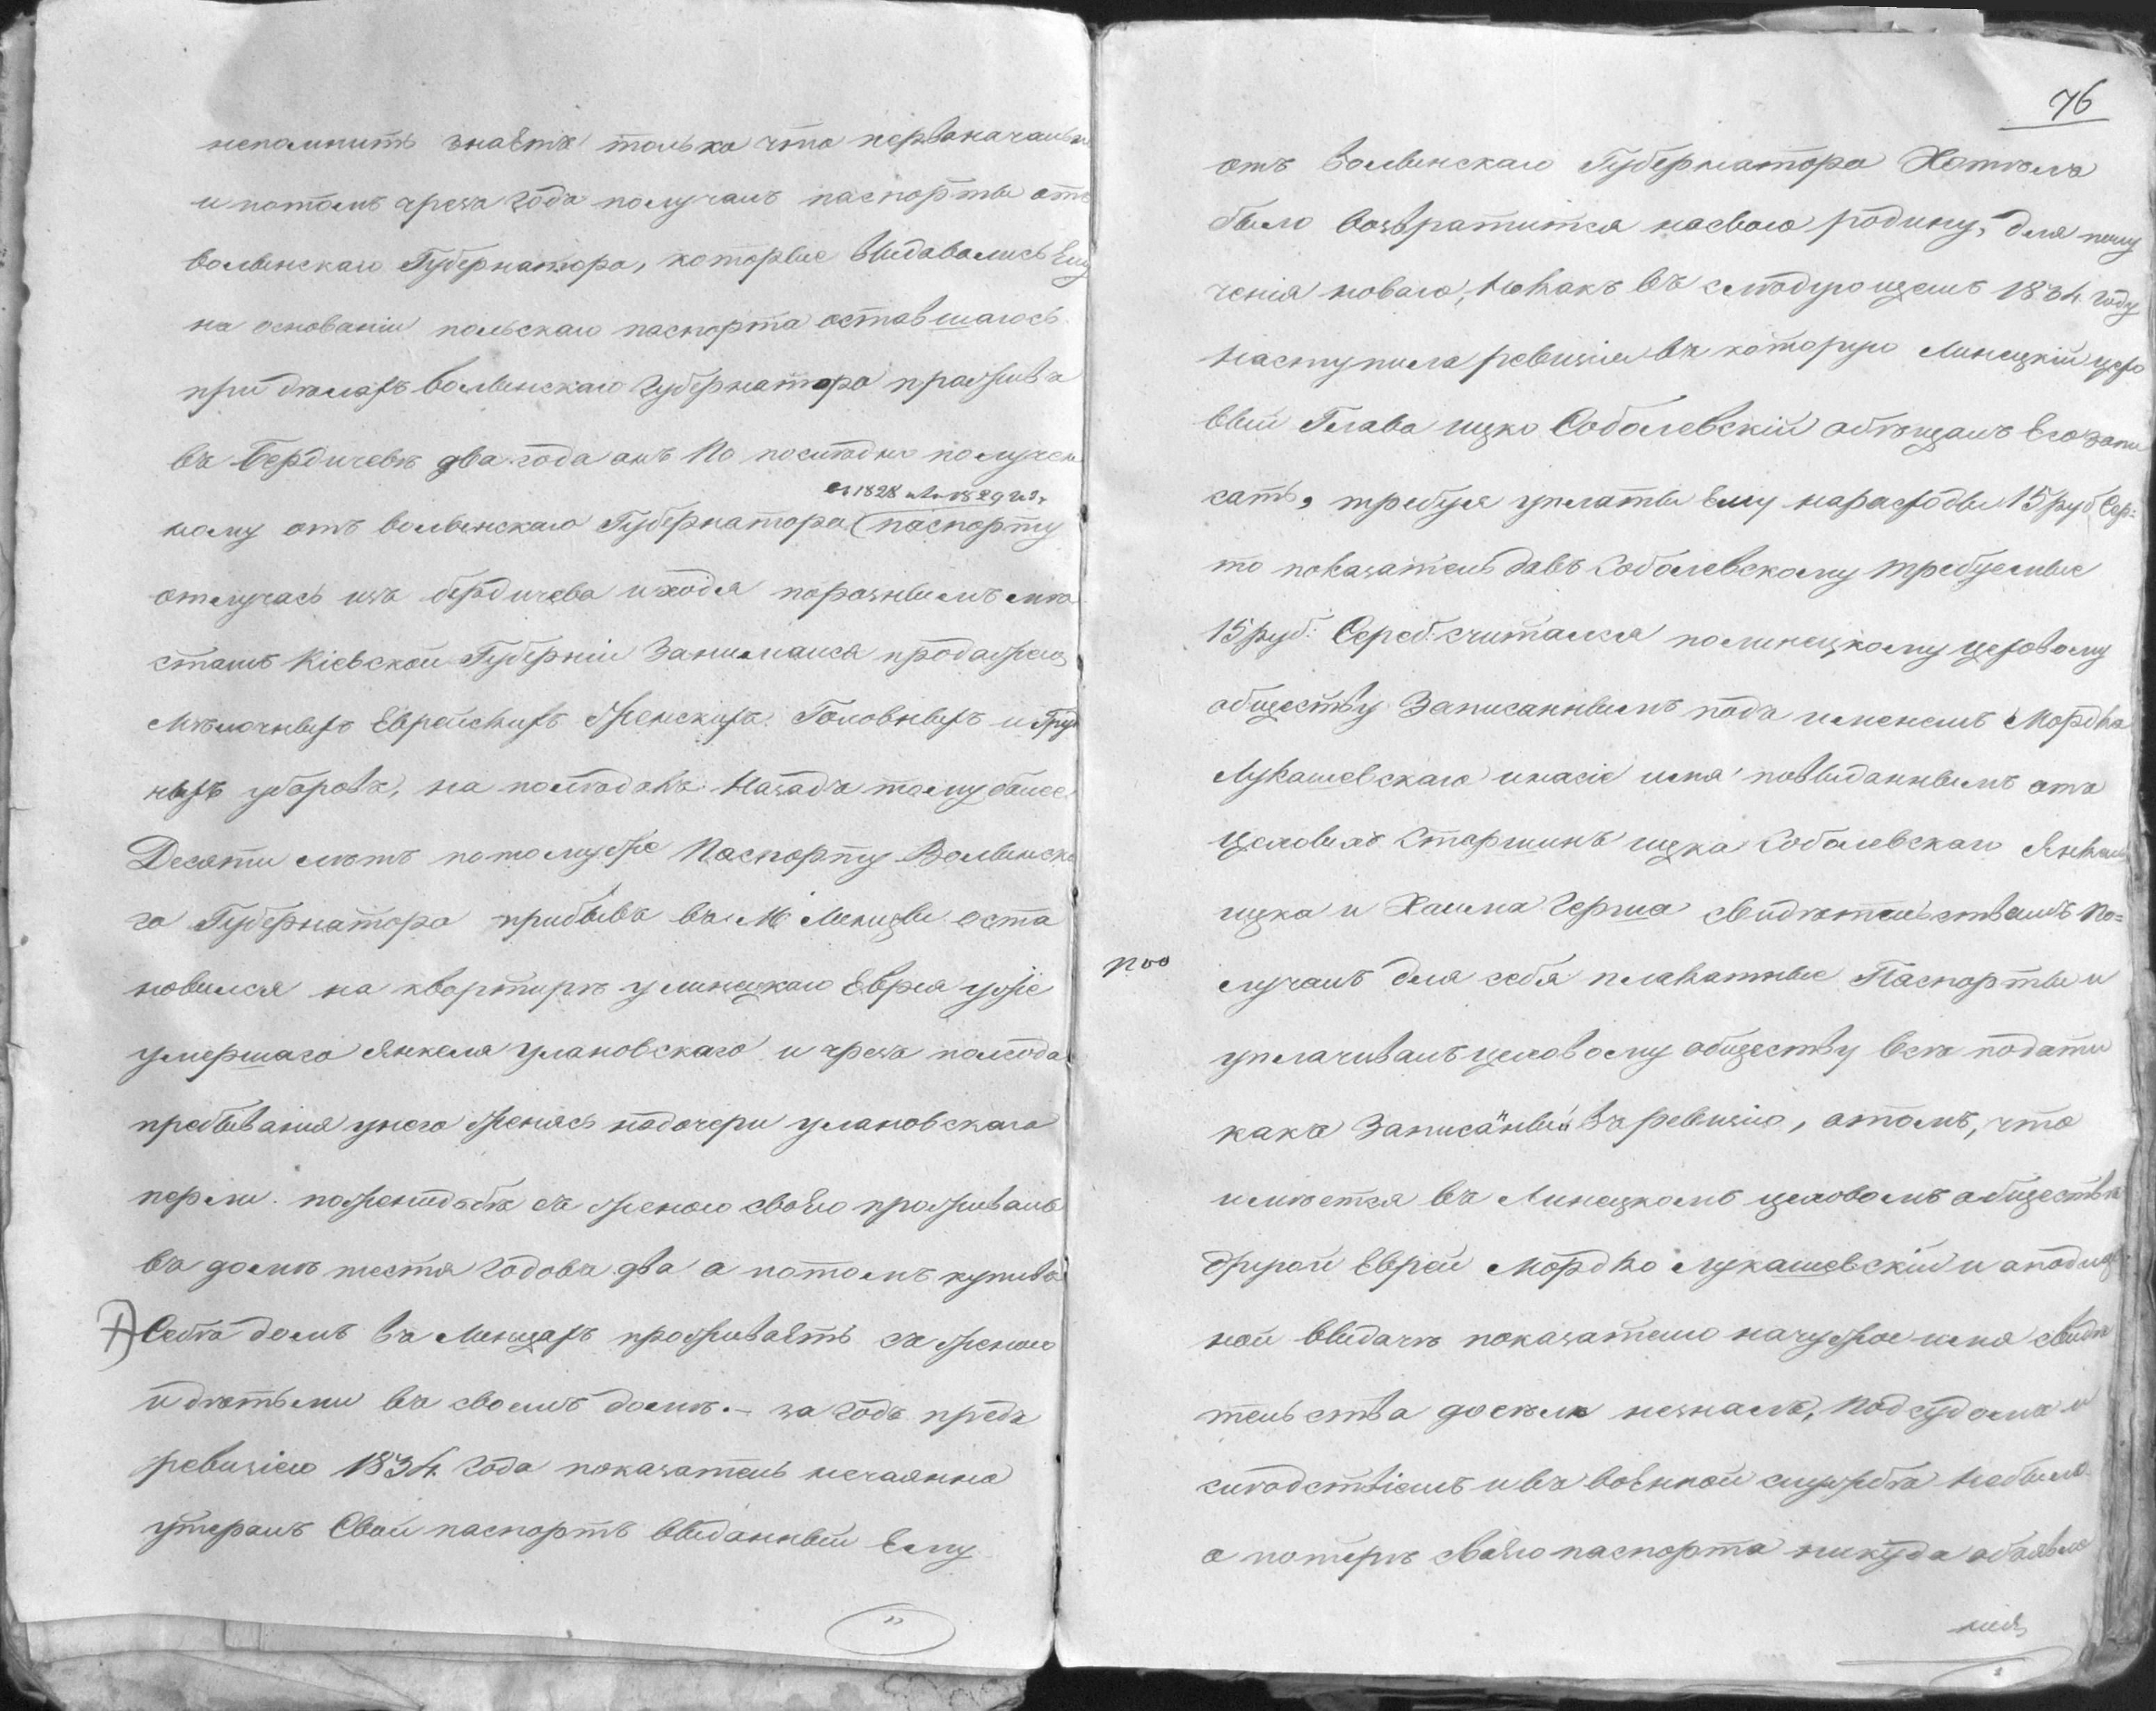 непомнитъ знаетъ только что первоначально
и потомъ чрезъ года получалъ паспорты отъ
волынскаго Губернатора, которые выдавались Ему
на основаніи польскаго паспорта оставшагось
при делахъ волынскаго Губернатора проживъ
въ Бердичевѣ два года онъ по последне получен
въ 1828 или 1829 г.
ному отъ волынскаго Губернатора (паспорту
отлучась изъ бердичева и ходя поразнымъ мѣ
стамъ Кіевской Губерніи Занимаися продажею
Мѣлочныхъ Еврейскихъ Женскихъ Головныхъ и Груд
ныхъ уборовъ, на последокъ Назадъ тому более
Десяти летъ потомуже Паспорту Волынска
го Губернатора прибывъ въ М. Линцы оста
новился на квартирѣ у линецкаго Еврея уже
умершаго Янкеля улановскаго и чрезъ полгода
пребыванія унего женясь надочери улановскаго
перли. поженидьбѣ съ женою своею проживалъ
въ домѣ тестя годовъ два а потомъ купивъ
Себѣ домъ въ Линцахъ проживаетъ съ женою
и дѣтьми въ своемъ домѣ. – за годъ предъ
ревизіею 1834. года показатель нечаянно
утерялъ Свой паспортъ выданный Ему
76
отъ волынскаго Губернатора Хотѣлъ
было возвратится насвою родину, для полу
ченія новаго, Нокакъ въ следующемъ 1834. году
наступила ревизія въ которую Линецкій цехо
вый Глава ицко Соболевскій обещалъ Его запи
сать, требуя уплаты Ему нарасходы 15 руб Сер:
то показатель давъ Соболевскому требуемые
15 руб: Сереб: считался полинецкому цеховому
обществу Записаннымъ подъ именемъ Мордка
Лукашевскаго инасіе имя повыданнымъ отъ
Цеховыхъ Старшинъ ицка Соболевскаго Янкеля
ицка и Хаима Герша свидѣтельствамъ По=
лучалъ для себя плакатные Паспорты и
уплачивалъ цеховому обществу все подати
какъ Записанный въ ревизію, отомъ, что
имеется въ Линецкомъ цеховомъ обществѣ
другой Еврей Мордко Лукашевскій и
ной выдачѣ показателю начужое имя свидѣ
тельства доселѣ незналъ, Подсудомъ и
следствіемъ и въ военной службѣ Небылъ
о потерѣ своего паспорта никуда объявле
нія